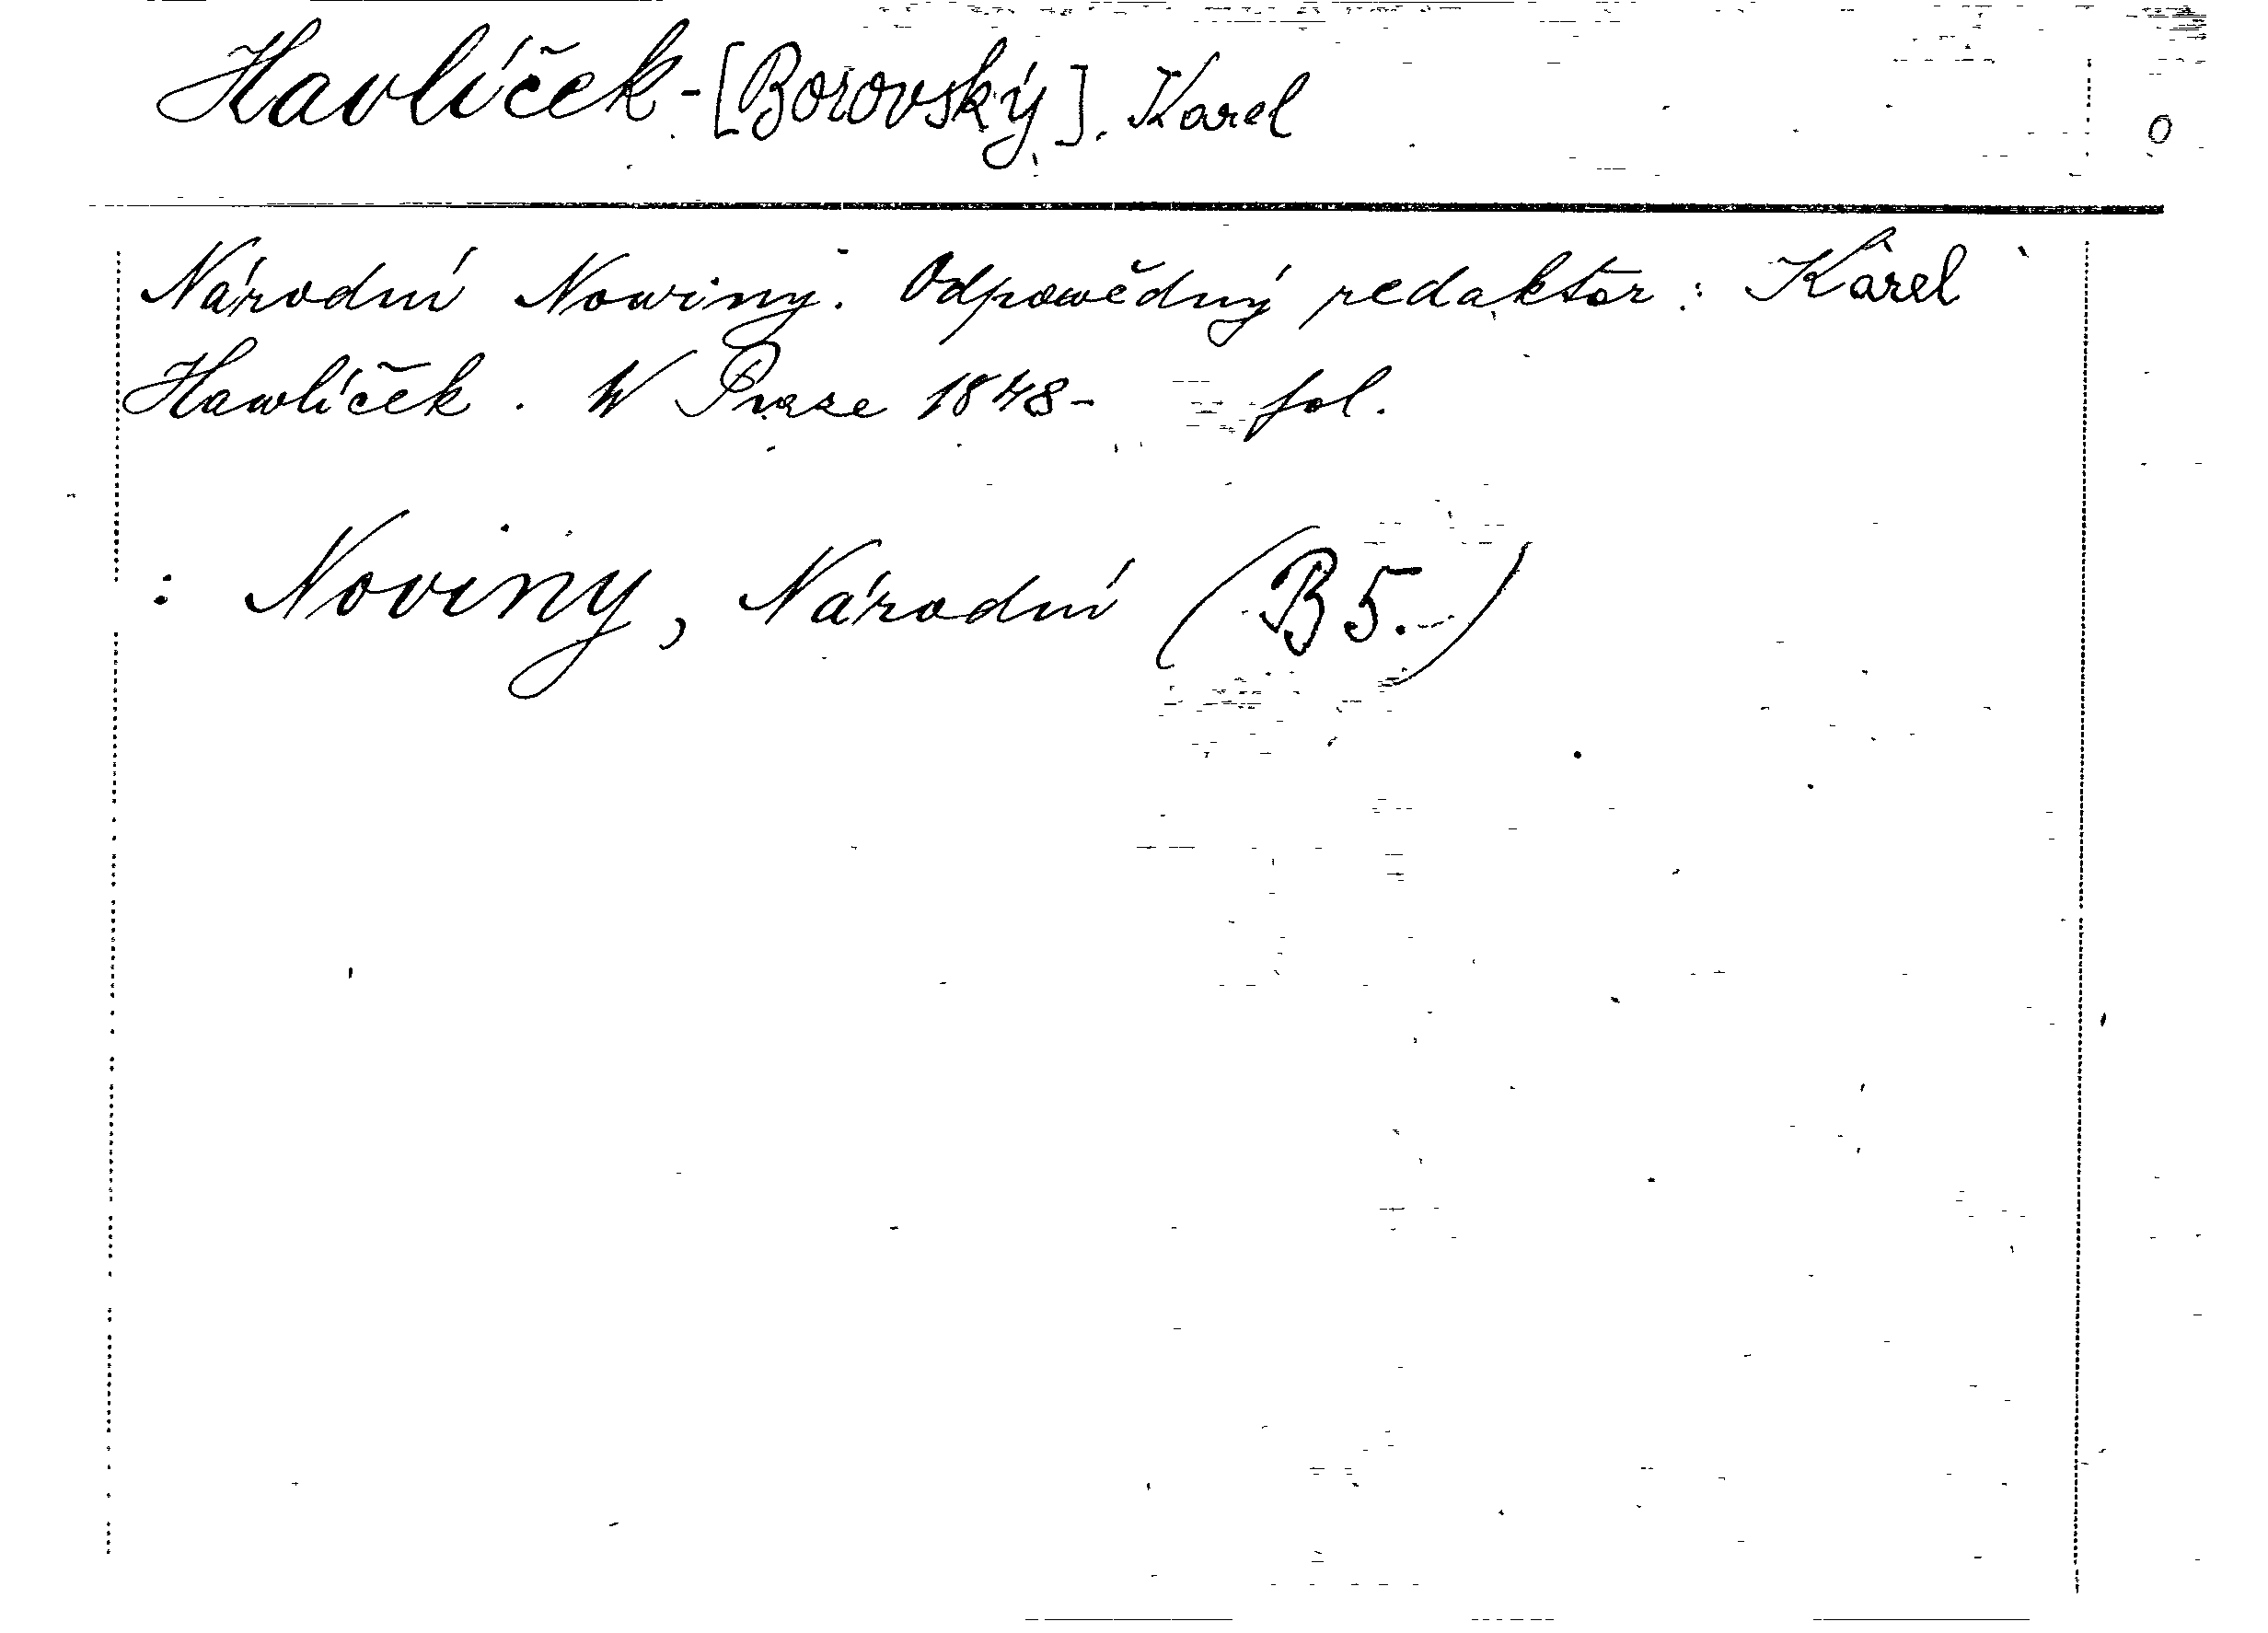 Havlíček-[Borovský]. Karel
O
Národní Nowiny. Odpowědný redaktor: Karel
Hawlíček. W Praze 1848- fol.
: Noviny, Národní (B5.)